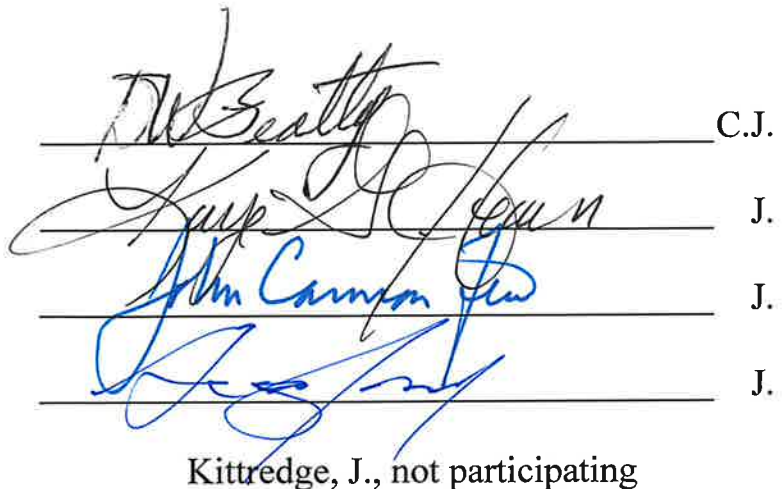 DW Beatty C.J.
Kaye G Hearn J.
John Cannon Few J.
J.
Kittredge, J., not participating